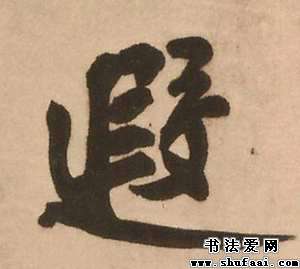 遐
书法爱网
www.shufaai.com